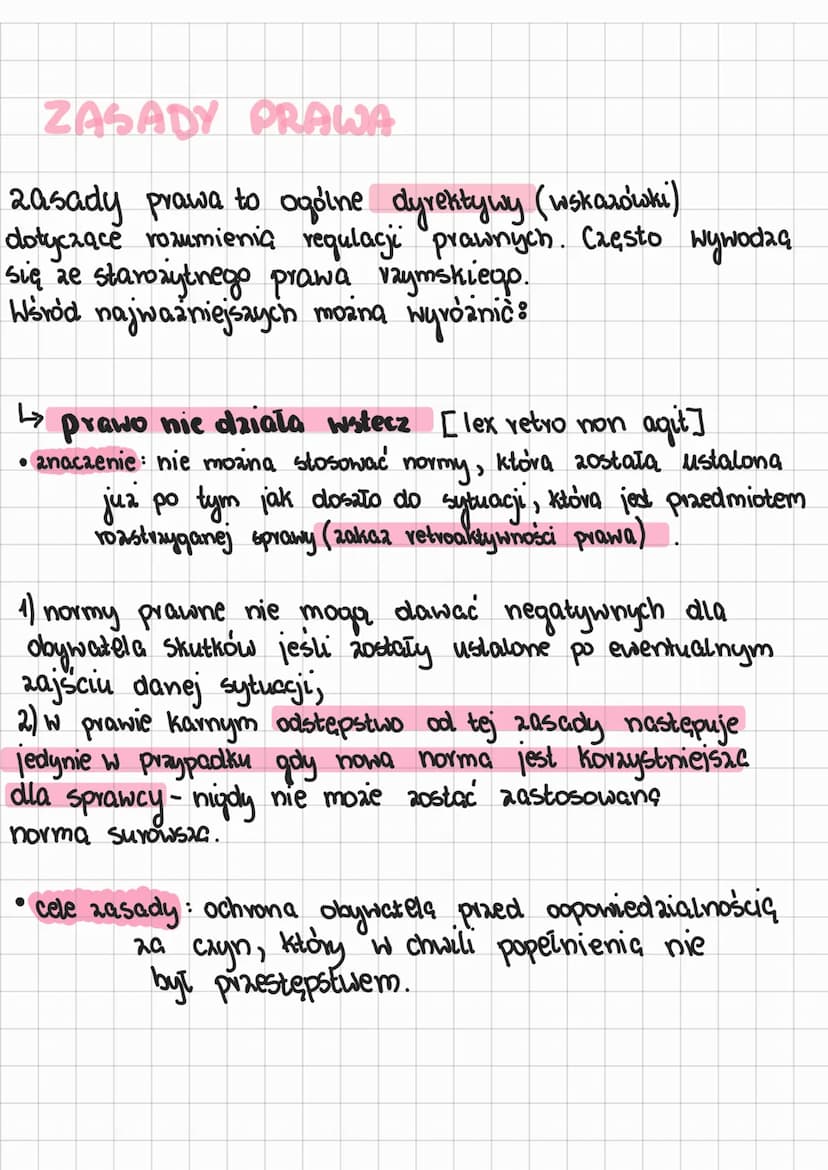 ZASADY PRAWA
zasady prawa to ogólne dyrektywy (wskazówki)
dotyczące rozumienia regulacji prawnych. Często wywodzą
się ze starożytnego prawa rzymskiego.
Wśród najważniejszych można wyróżnić:
↳ prawo nie działa wstecz [lex retro non agit]
• znaczenie: nie można stosować normy, która została ustalona
już po tym jak doszło do sytuacji, która jest przedmiotem
rozstrzyganej sprawy (zakaz retroaktywności prawa).
1) normy prawne nie mogą dawać negatywnych dla
obywatela skutków jeśli zostały ustalone po ewentualnym
zajściu danej sytuacji,
2) w prawie karnym odstępstwo od tej zasady następuje
jedynie w przypadku gdy nowa norma jest korzystniejsza
dla sprawcy - nigdy nie może zostać zastosowana
norma surowsza.
• cele zasady: ochrona obywatela przed odpowiedzialnością
za czyn, który w chwili popełnienia nie
był przestępstwem.